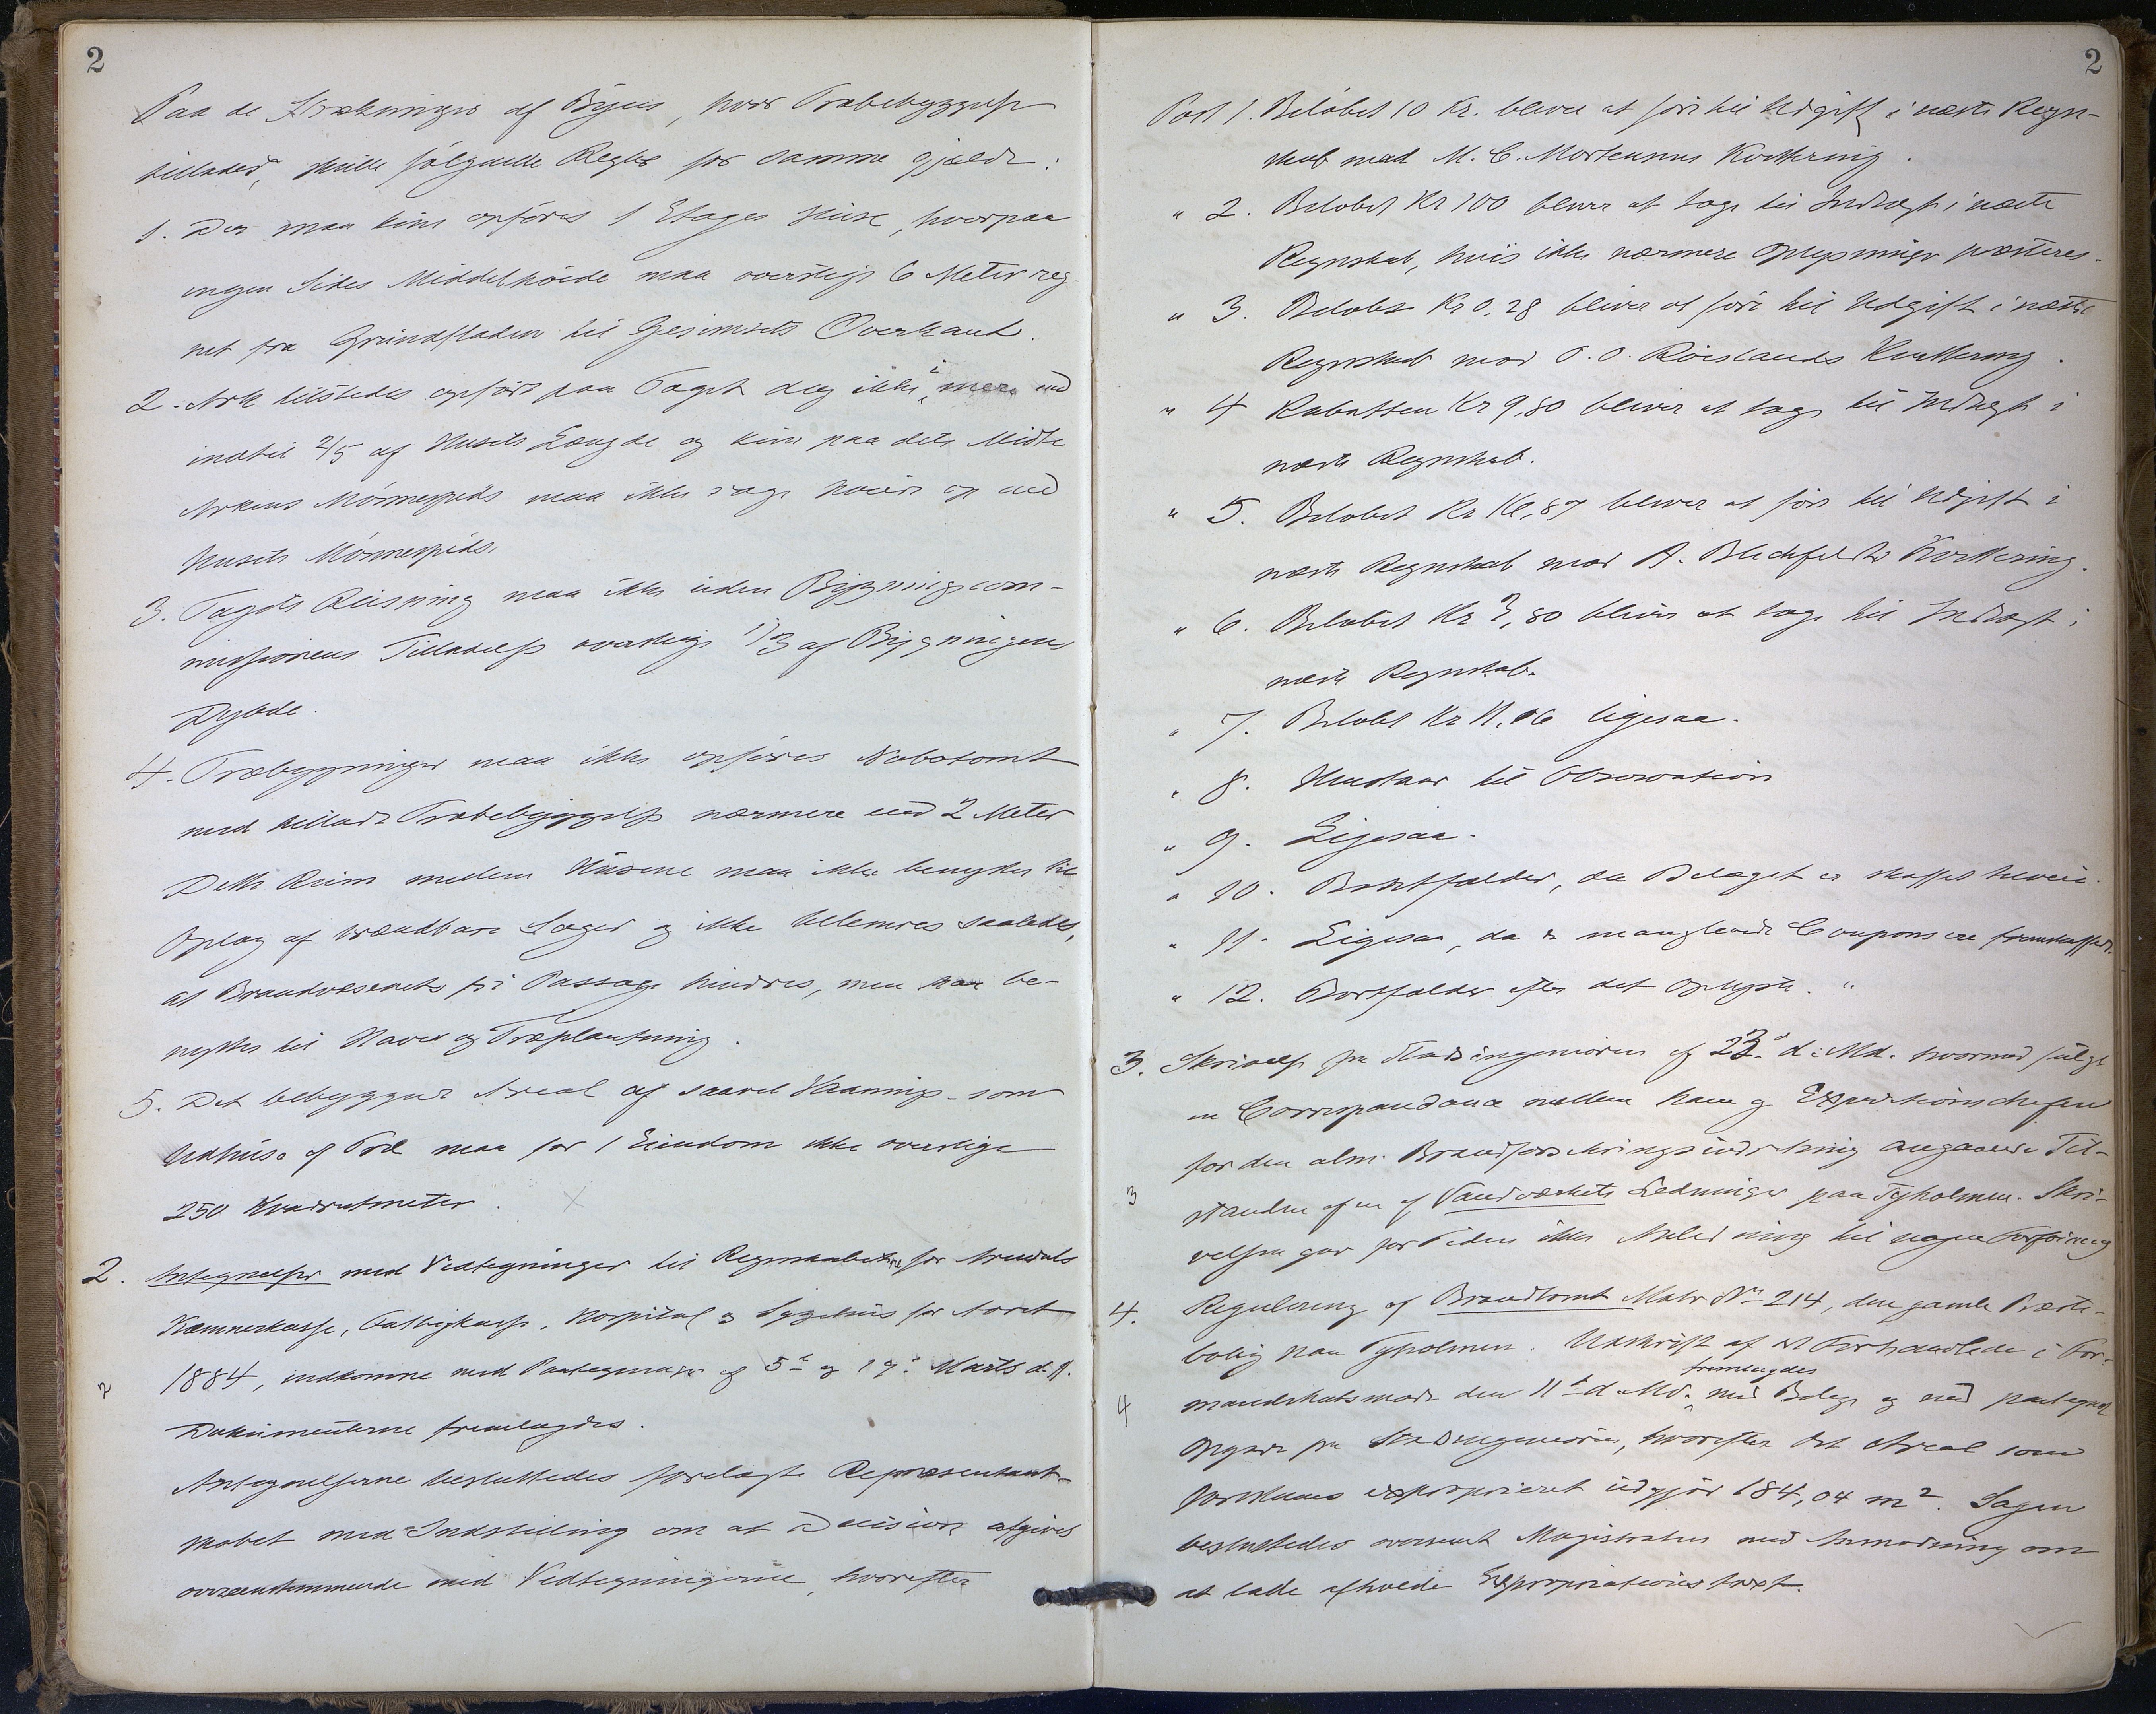 2
Paa de Strækninger af Byen, hvor Træbebyggelse
tillades, skulle følgende Regler for samme gjælde:
1. Der maa kun opføres 1 Etages Huse, hvorpaa
ingen Sides Middelhøide maa overstige 6 Meter reg
net fra Grundfladen til Gesimsets Overkant.
2. Ark tilstedes opført paa Taget dog ikke i mere end
indtil 2/5 af Husets Længde og kun paa dets Midte
Arkens Mønnespids maa ikke rage høiere op end
Husets Mønnespids.
3. Tagets Reisning maa ikke uden Bygningscom-
missionens Tilladelse overstige 1/3 af Bygningens
Dybde.
4. Træbygninger maa ikke opføres Nabotomt
med tilladt Træbebyggelse nærmere end 2 Meter
Dette Rum mellem Husene maa ikke benyttes til
Oplag af brændbare Sager og ikke saaledes,
at Brandvæsenets fri Passage hindres, men kan be-
nyttes til Have og Træplantning.
5. Det bebyggede Areal af saavel Vaanings- som
Udhuse af Træ maa for 1 Eiendom ikke overstige
250 Kvadratmeter.
2. Antegnelser med Vedtegninger til Regnskaberne for Arendals
Kæmnerkasse, Fattigkasse, Hospital og Sygehus for Aaret
2
1884, indkomne med Paategnelser af 5te og 17de Marts d. A.
Dokumenterne fremlagdes.
Antegnelserne besluttedes forelagte Repræsentant-
skabet med Indstilling om at Decision afgives
overensstemmende med Vedtegningerne, hvorefter
2
Post 1. Beløbet 10 Kr. bliver at føre til Udgift i næste Regn-
skab mod M. C. Mortensens Kvittering.
" 2. Beløbet Kr 100 bliver at tage til Indtægt i næste
Regnskab, hvis ikke nærmere Oplysninger præsteres.
" 3. Beløbet Kr 0,28 bliver at føre til Udgift i næste
Regnskab mod O. O. Røislands Kvittering.
" 4 Rabatten Kr 9,80 bliver at tage til Indtægt i
næste Regnskab.
" 5. Beløbet Kr 16,87 bliver at føre til Udgift i
næste Regnskab mod A. Blechfeldts Kvittering.
" 6. Beløbet Kr 3,80 bliver at tage til Indtægt i
næste Regnskab.
" 7. Beløbet Kr 11.06 ligesaa.
" 8. Henstaar til Observation
" 9. Ligesaa.
" 10. Bortfalder, da Belaget er skaffet tilveie.
" 11. Ligesaa, da de manglende Coupons ere fremskaffede.
" 12. Bortfalder efter det Oplyste. "
3. Skrivelse fra Stadsingeniøren af 23d d. Md. hvormed fulgte
en Correspondance mellem ham og Expeditionschefen
for den alm. Brandforsikringsindretning angaaende Til-
3
standen af Vandværkets Ledninger paa Tyholmen. Skri-
velsen gav for Tiden ikke Anledning til nogen Forføining
4. Regulering af Brandtomt Matr No 214, den gamle Præste-
bolig paa Tyholmen. Udskrift af det Forhandlede i For-
fremlagdes
4
mandskabsmøde den 11te d. Md. med Belæg og med paategnet
Opgave fra Stadsingeniøren, hvorefter det Areal som
forelaaes exproprieret udgjør 184,04 m2. Sagen
besluttedes oversendt Magistraten med Anmodning om
at lade afholde Expropriationstaxt.